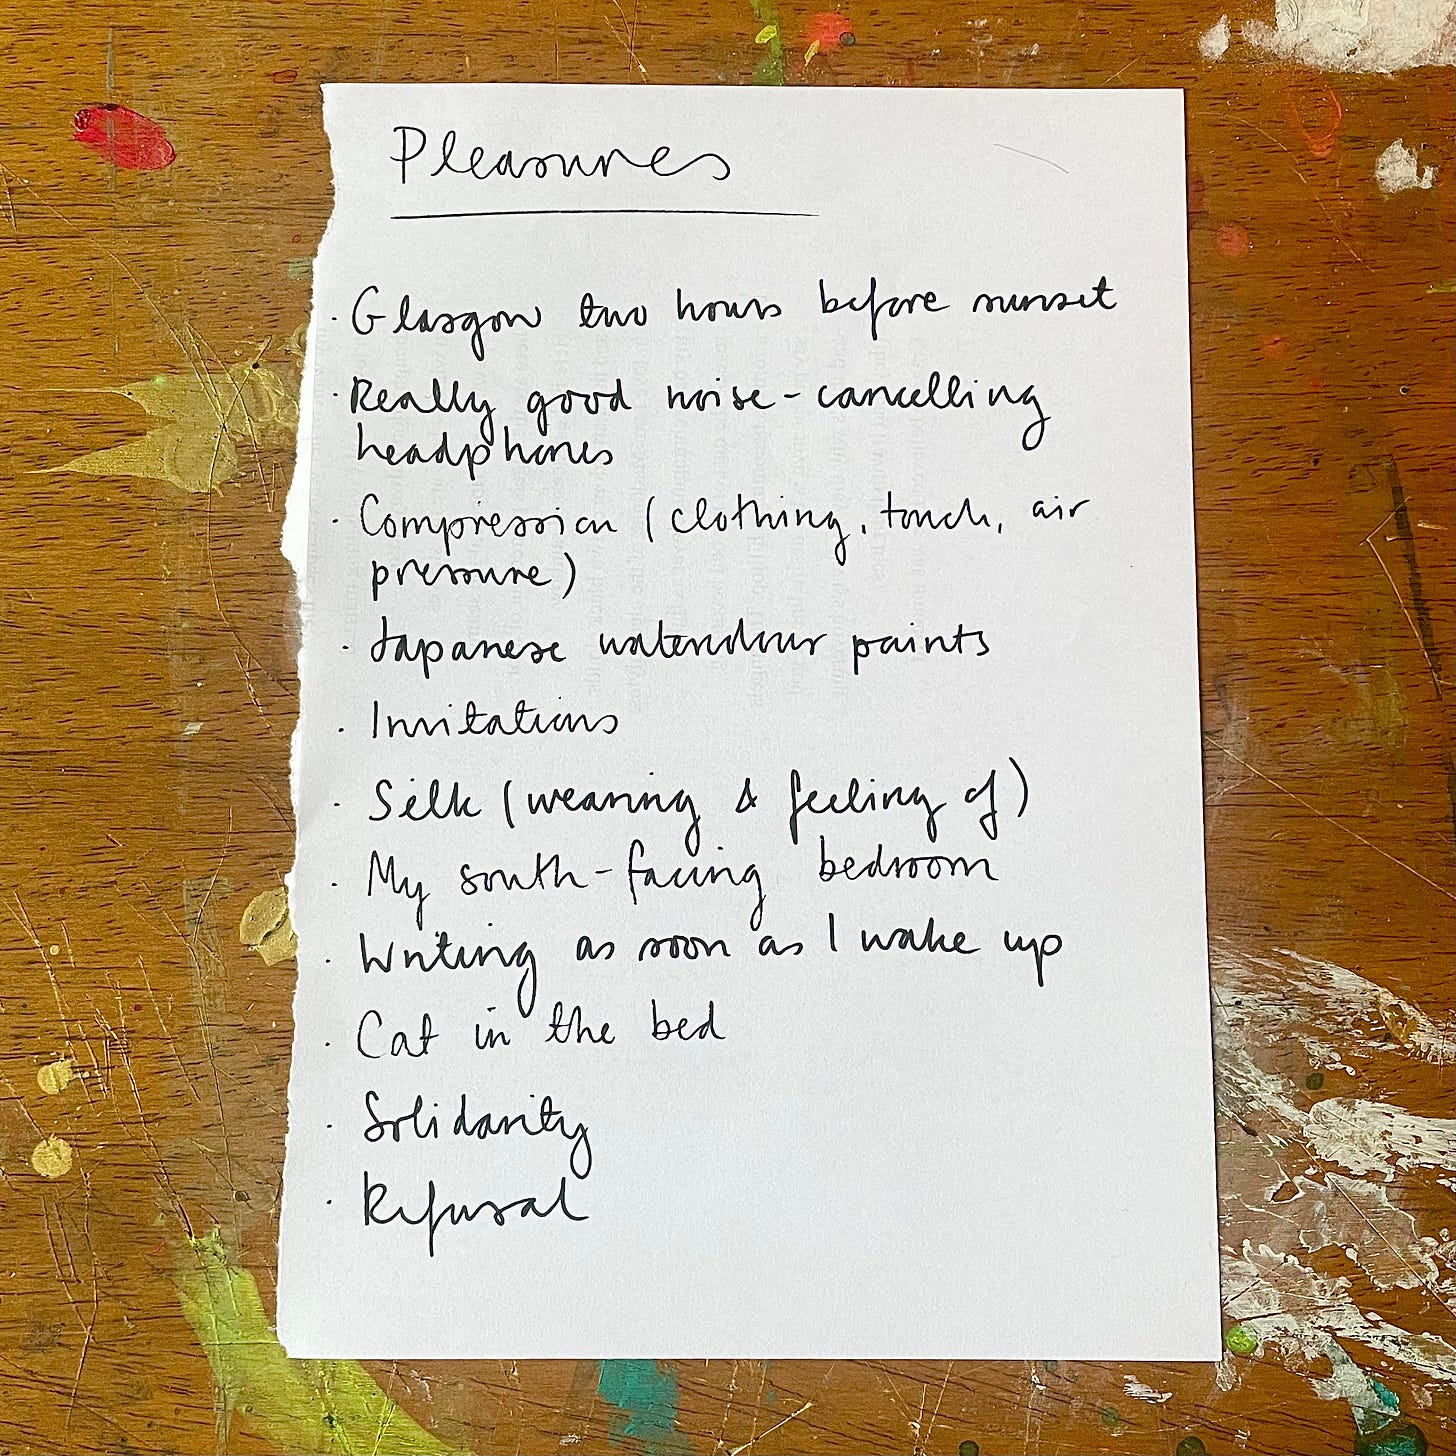 Pleasures
· Glasgow two hours before sunset
· Really good noise-cancelling
headphones
· Compression (clothing, touch, air
pressure)
· Japanese watercolour paints
· Invitations
· Silk (wearing & feeling of)
· My south-facing bedroom
· Writing as soon as I wake up
· Cat in the bed
· Solidarity
· Refusal